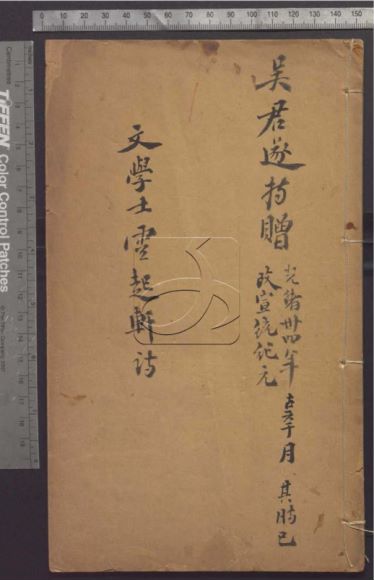 吳君遂持贈
光緒卅四年 月 其時已
改宣統紀元
文學士雲起軒詩
0 10 20 30 40 50 60 70 80 90 100 110 120 130 140 150
TIFFEN Color Control Patches
Centimetres